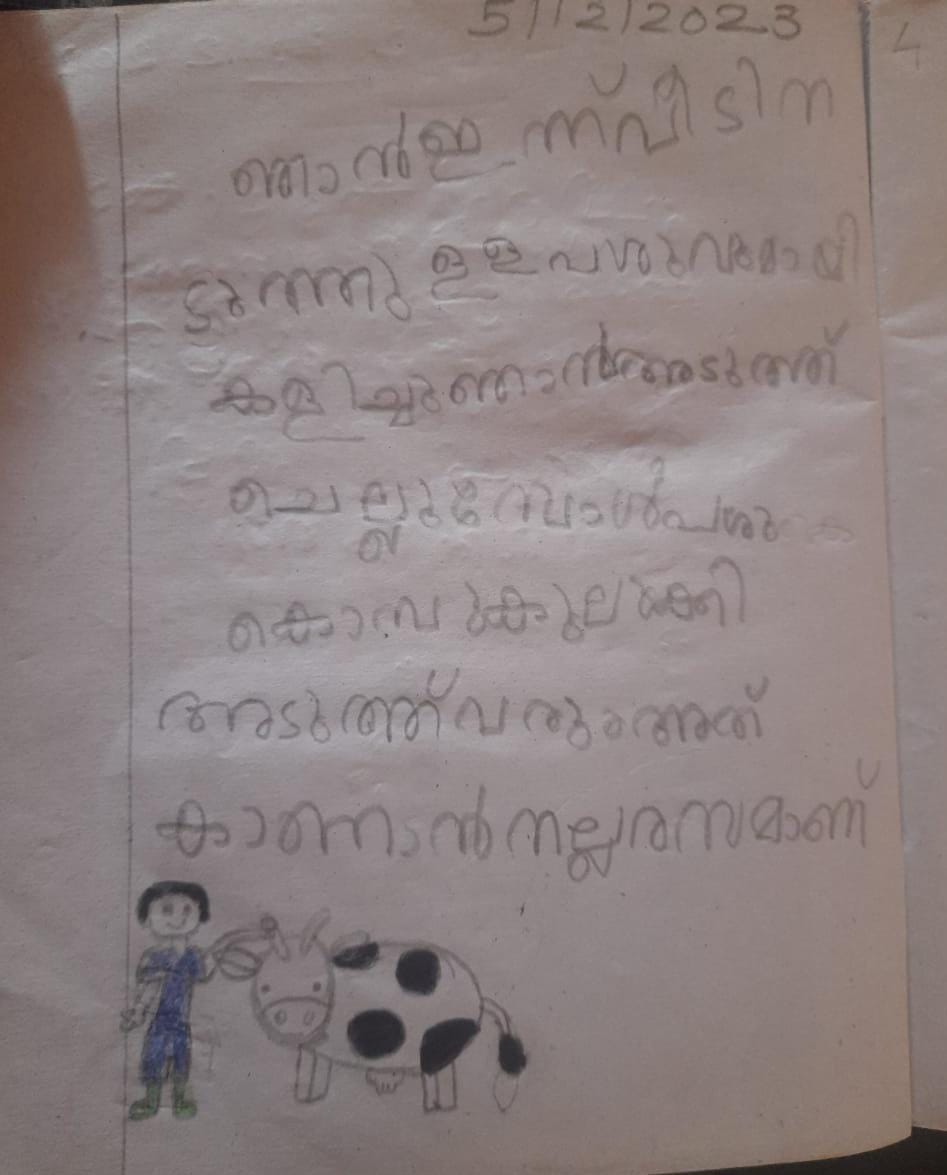 5/12/2023
ഞാൻ ഇന്ന് വീടിന
ടുത്തു ളള പശുവുമായി
കളിച്ചു ഞാൻ അടുത്ത്
ചെല്ലുമ്പോൾ പശു
കൊമ്പു കുലുക്കി
അടുത്ത് വരും അത്
കാണാൻ നല്ല രസമാണ്